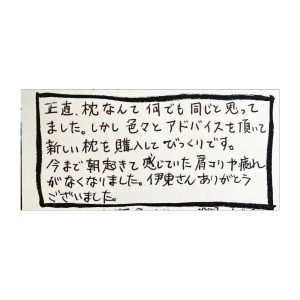 正直、枕なんて何でも同じと思って
ました。しかし色々とアドバイスを頂いて
新しい枕を購入してびっくりです。
今まで朝起きて感じていた肩コリや疲れ
がなくなりました。伊東さんありがとう
ございました。